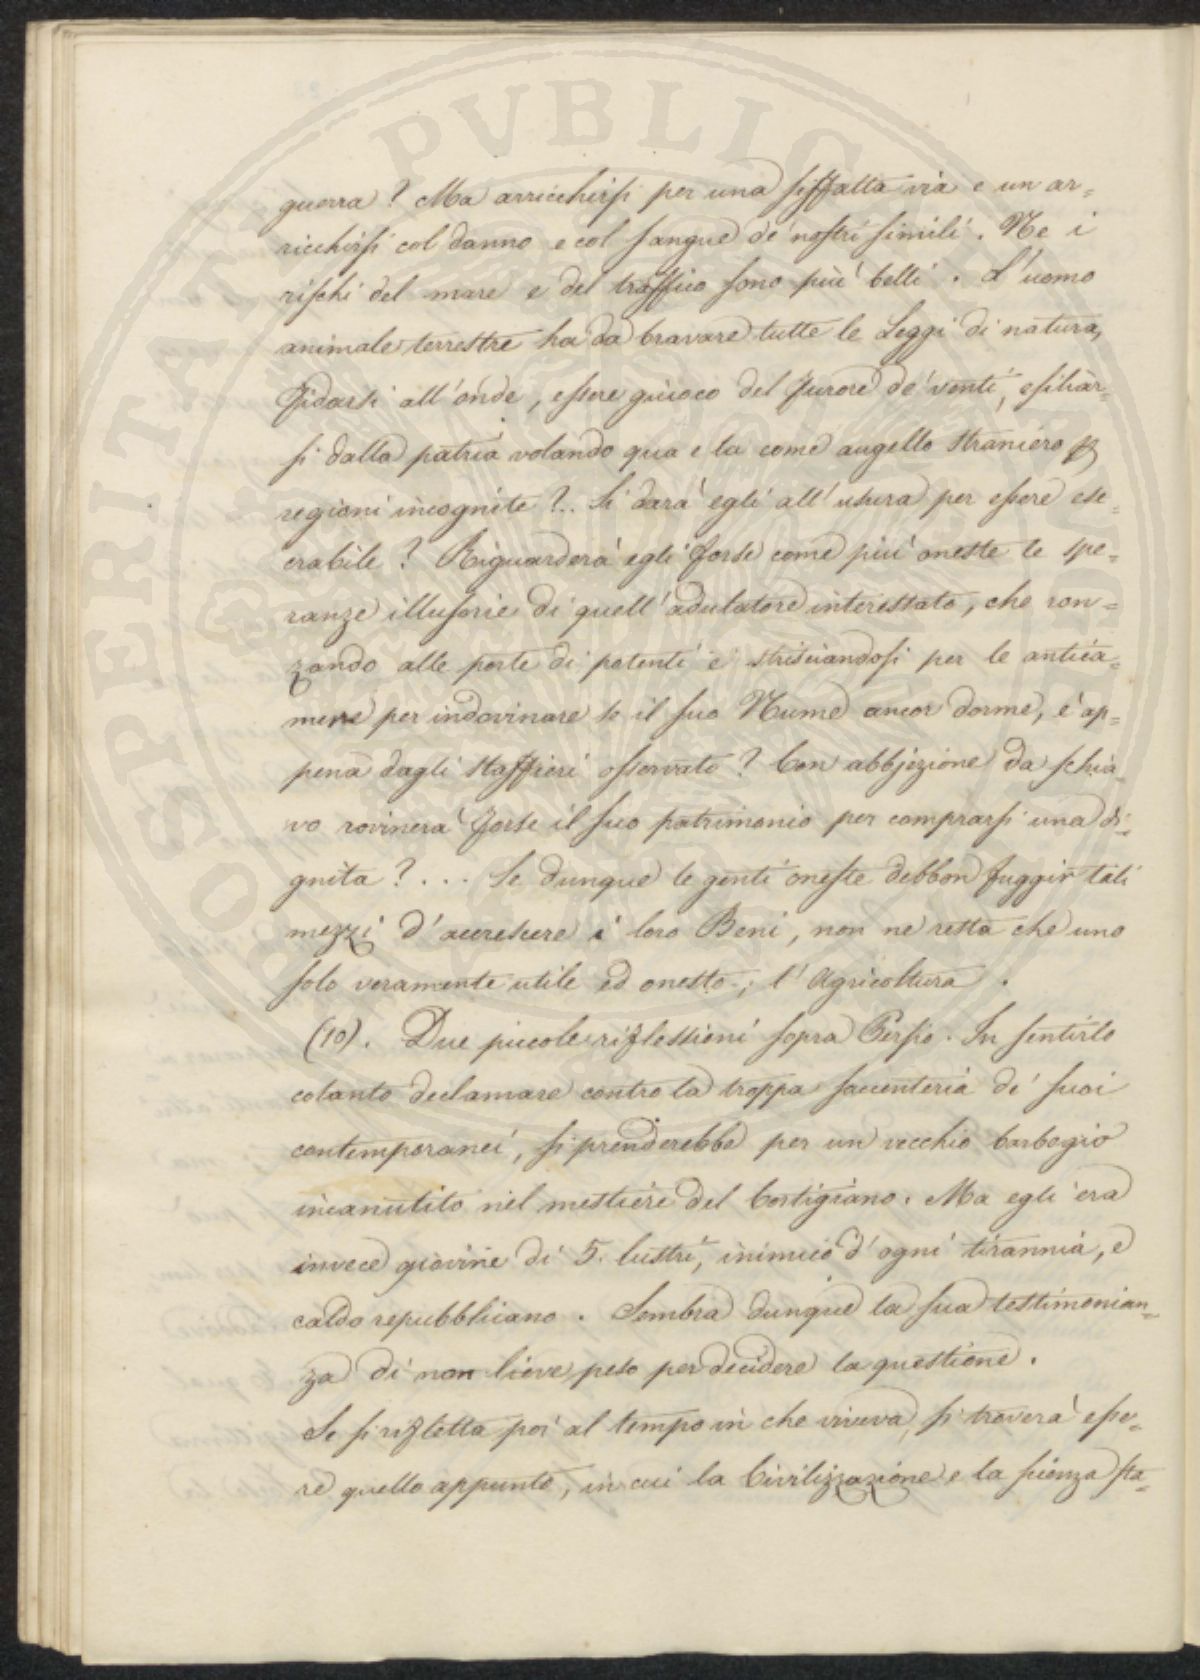 guerra? Ma arricchirsi per una siffatta via e un ar=
ricchirsi col danno e col sangue de' nostri simili. Ne i
rischi del mare e del traffico sono più belli. L'uomo
animale terrestre ha da bravare tutte le Leggi di natura,
fidarsi all'onde, essere giuoco del furore de' venti, esiliar=
si dalla patria volando qua e la come augello straniero p
regioni incognite?.. Si darà egli all'usura per essere ese=
crabile? Riguarderà egli forse come più oneste le spe=
ranze illusorie di quell'adulatore interessato, che ron=
zando alle porte di potenti e strisciandosi per le antica=
mere per indovinare se il suo Nume ancor dorme, è ap=
pena dagli staffieri osservato? Con abbjezione da schia=
vo rovinerà forse il suo patrimonio per comprarsi una di=
gnita? ... Se dunque le genti oneste debbon fuggir tali
mezzi d'accrescere i loro Beni, non ne resta che uno
solo veramente utile ed onesto; l'Agricoltura.
(10). Due piccole riflessioni sopra Persio. In sentirlo
cotanto declamare contro la troppa saccenteria de' suoi
contemporanei, si prenderebbe per un vecchio barbogio
incanutito nel mestiere del Cortigiano. Ma egli era
invece giovine di 5. lustri, inimico d'ogni tirannia, e
caldo repubblicano. Sembra dunque la sua testimonian=
za di non lieve peso per decidere la questione.
Se si rifletta poi al tempo in che viveva, si troverà esse=
re quello appunto, in cui la Civilizzazione e la scienza sta=
PROSPERITATI PVBLICAE AVGENDAE